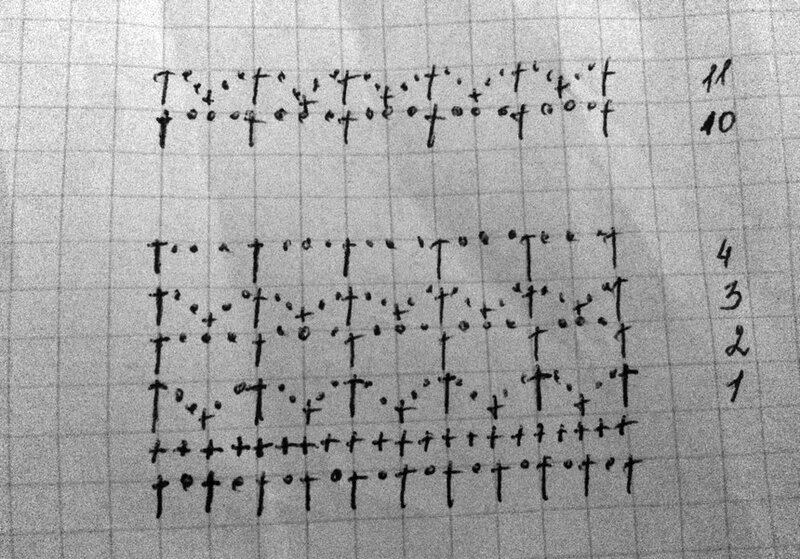 11
10
4
3
2
1